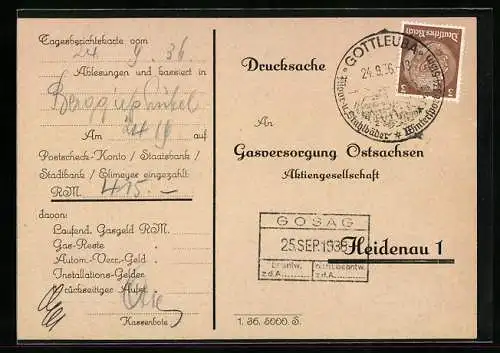 Tagesberichtskarte vom
24 9. 36.
Ablesungen und kassiert in
Berggießhübel
Am 24/9 auf
Postscheck-Konto / Staatsbank /
Stadtbank / Slimeyer eingezahlt
RM. 415.-
davon:
Laufend. Gasgeld RM.
Gas-Reste "
Autom.-Verr.-Geld "
Installations-Gelder
Rückseitiger Aufst.
Kassenbote:
Drucksache
An
Gasversorgung Ostsachsen
Aktiengesellschaft
Heidenau 1
GOSAG
25.SEP.1936
z.d.A.
z.d.A.
1. 36. 5000. S.
GOTTLEUBA
24.9.36
Moor- u. Stahlbäder * Wintersport
Deutsches Reich
3 3